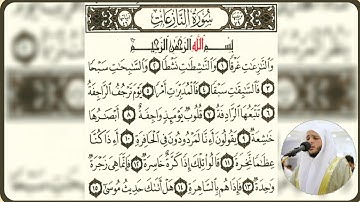 سُورَةُ النَّازِعَاتِ
بِسْمِ اللَّهِ الرَّحْمَٰنِ الرَّحِيمِ
وَالنَّازِعَاتِ غَرْقًا ١ وَالنَّاشِطَاتِ نَشْطًا ٢ وَالسَّابِحَاتِ سَبْحًا
٣ فَالسَّابِقَاتِ سَبْقًا ٤ فَالْمُدَبِّرَاتِ أَمْرًا ٥ يَوْمَ تَرْجُفُ الرَّاجِفَةُ
٦ تَتْبَعُهَا الرَّادِفَةُ ٧ قُلُوبٌ يَوْمَئِذٍ وَاجِفَةٌ ٨ أَبْصَارُهَا
خَاشِعَةٌ ٩ يَقُولُونَ أَءِنَّا لَمَرْدُودُونَ فِي الْحَافِرَةِ ١٠ أَءِذَا كُنَّا
عِظَامًا نَّخِرَةً ١١ قَالُوا تِلْكَ إِذًا كَرَّةٌ خَاسِرَةٌ ١٢ فَإِنَّمَا هِيَ زَجْرَةٌ
وَاحِدَةٌ ١٣ فَإِذَا هُم بِالسَّاهِرَةِ ١٤ هَلْ أَتَاكَ حَدِيثُ مُوسَىٰ ١٥